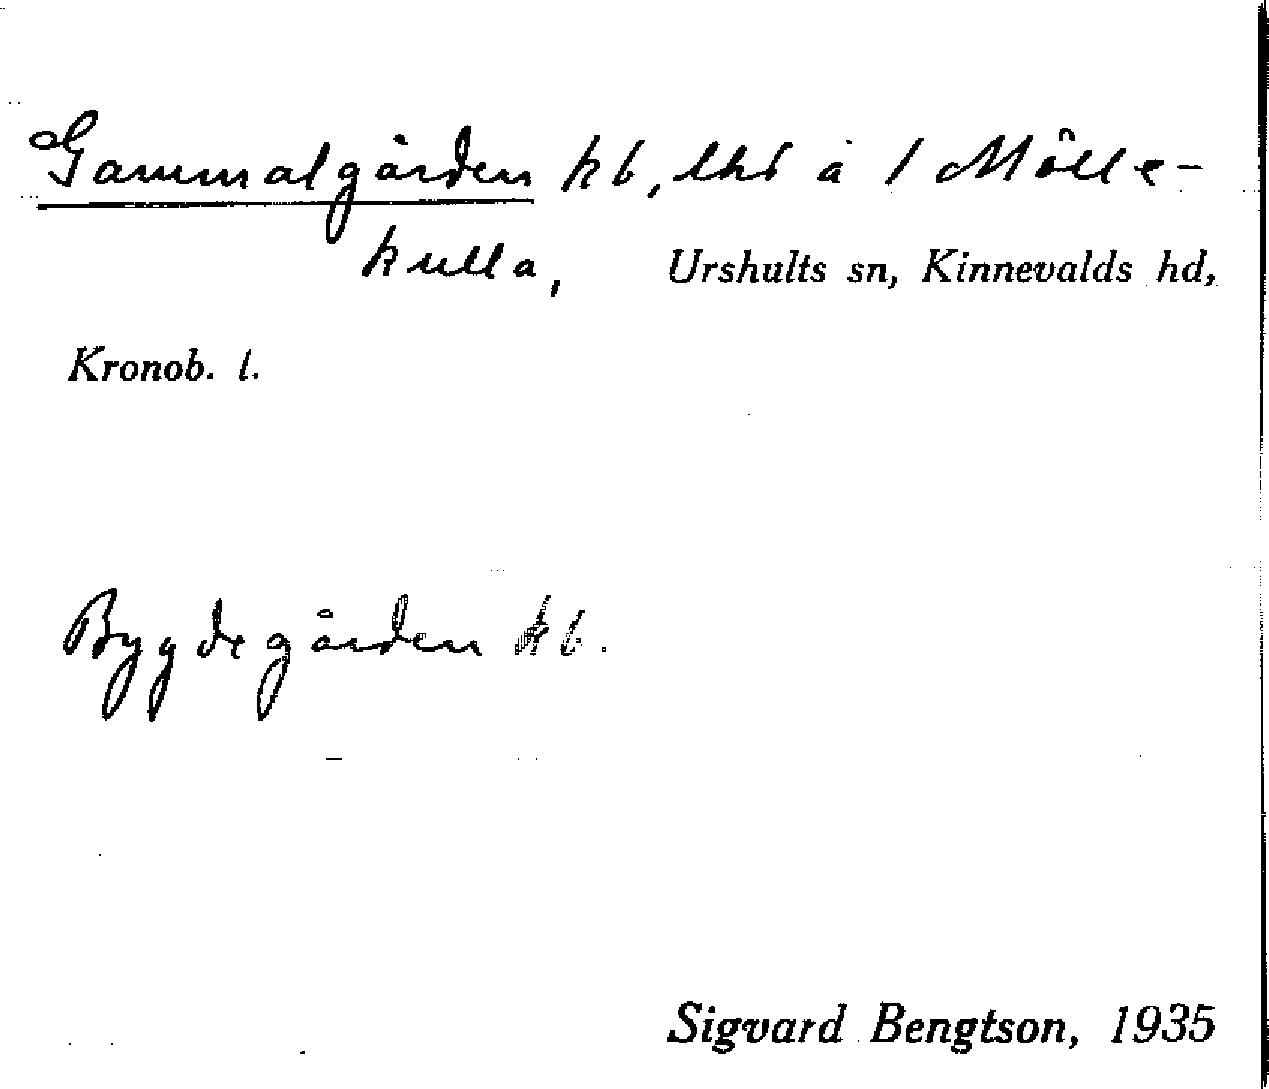 Gammalgården kb, lhs å 1 Mölle-
kulla, Urshults sn, Kinnevalds hd,
Kronob. l.
Bygdegården kb.
Sigvard Bengtson, 1935